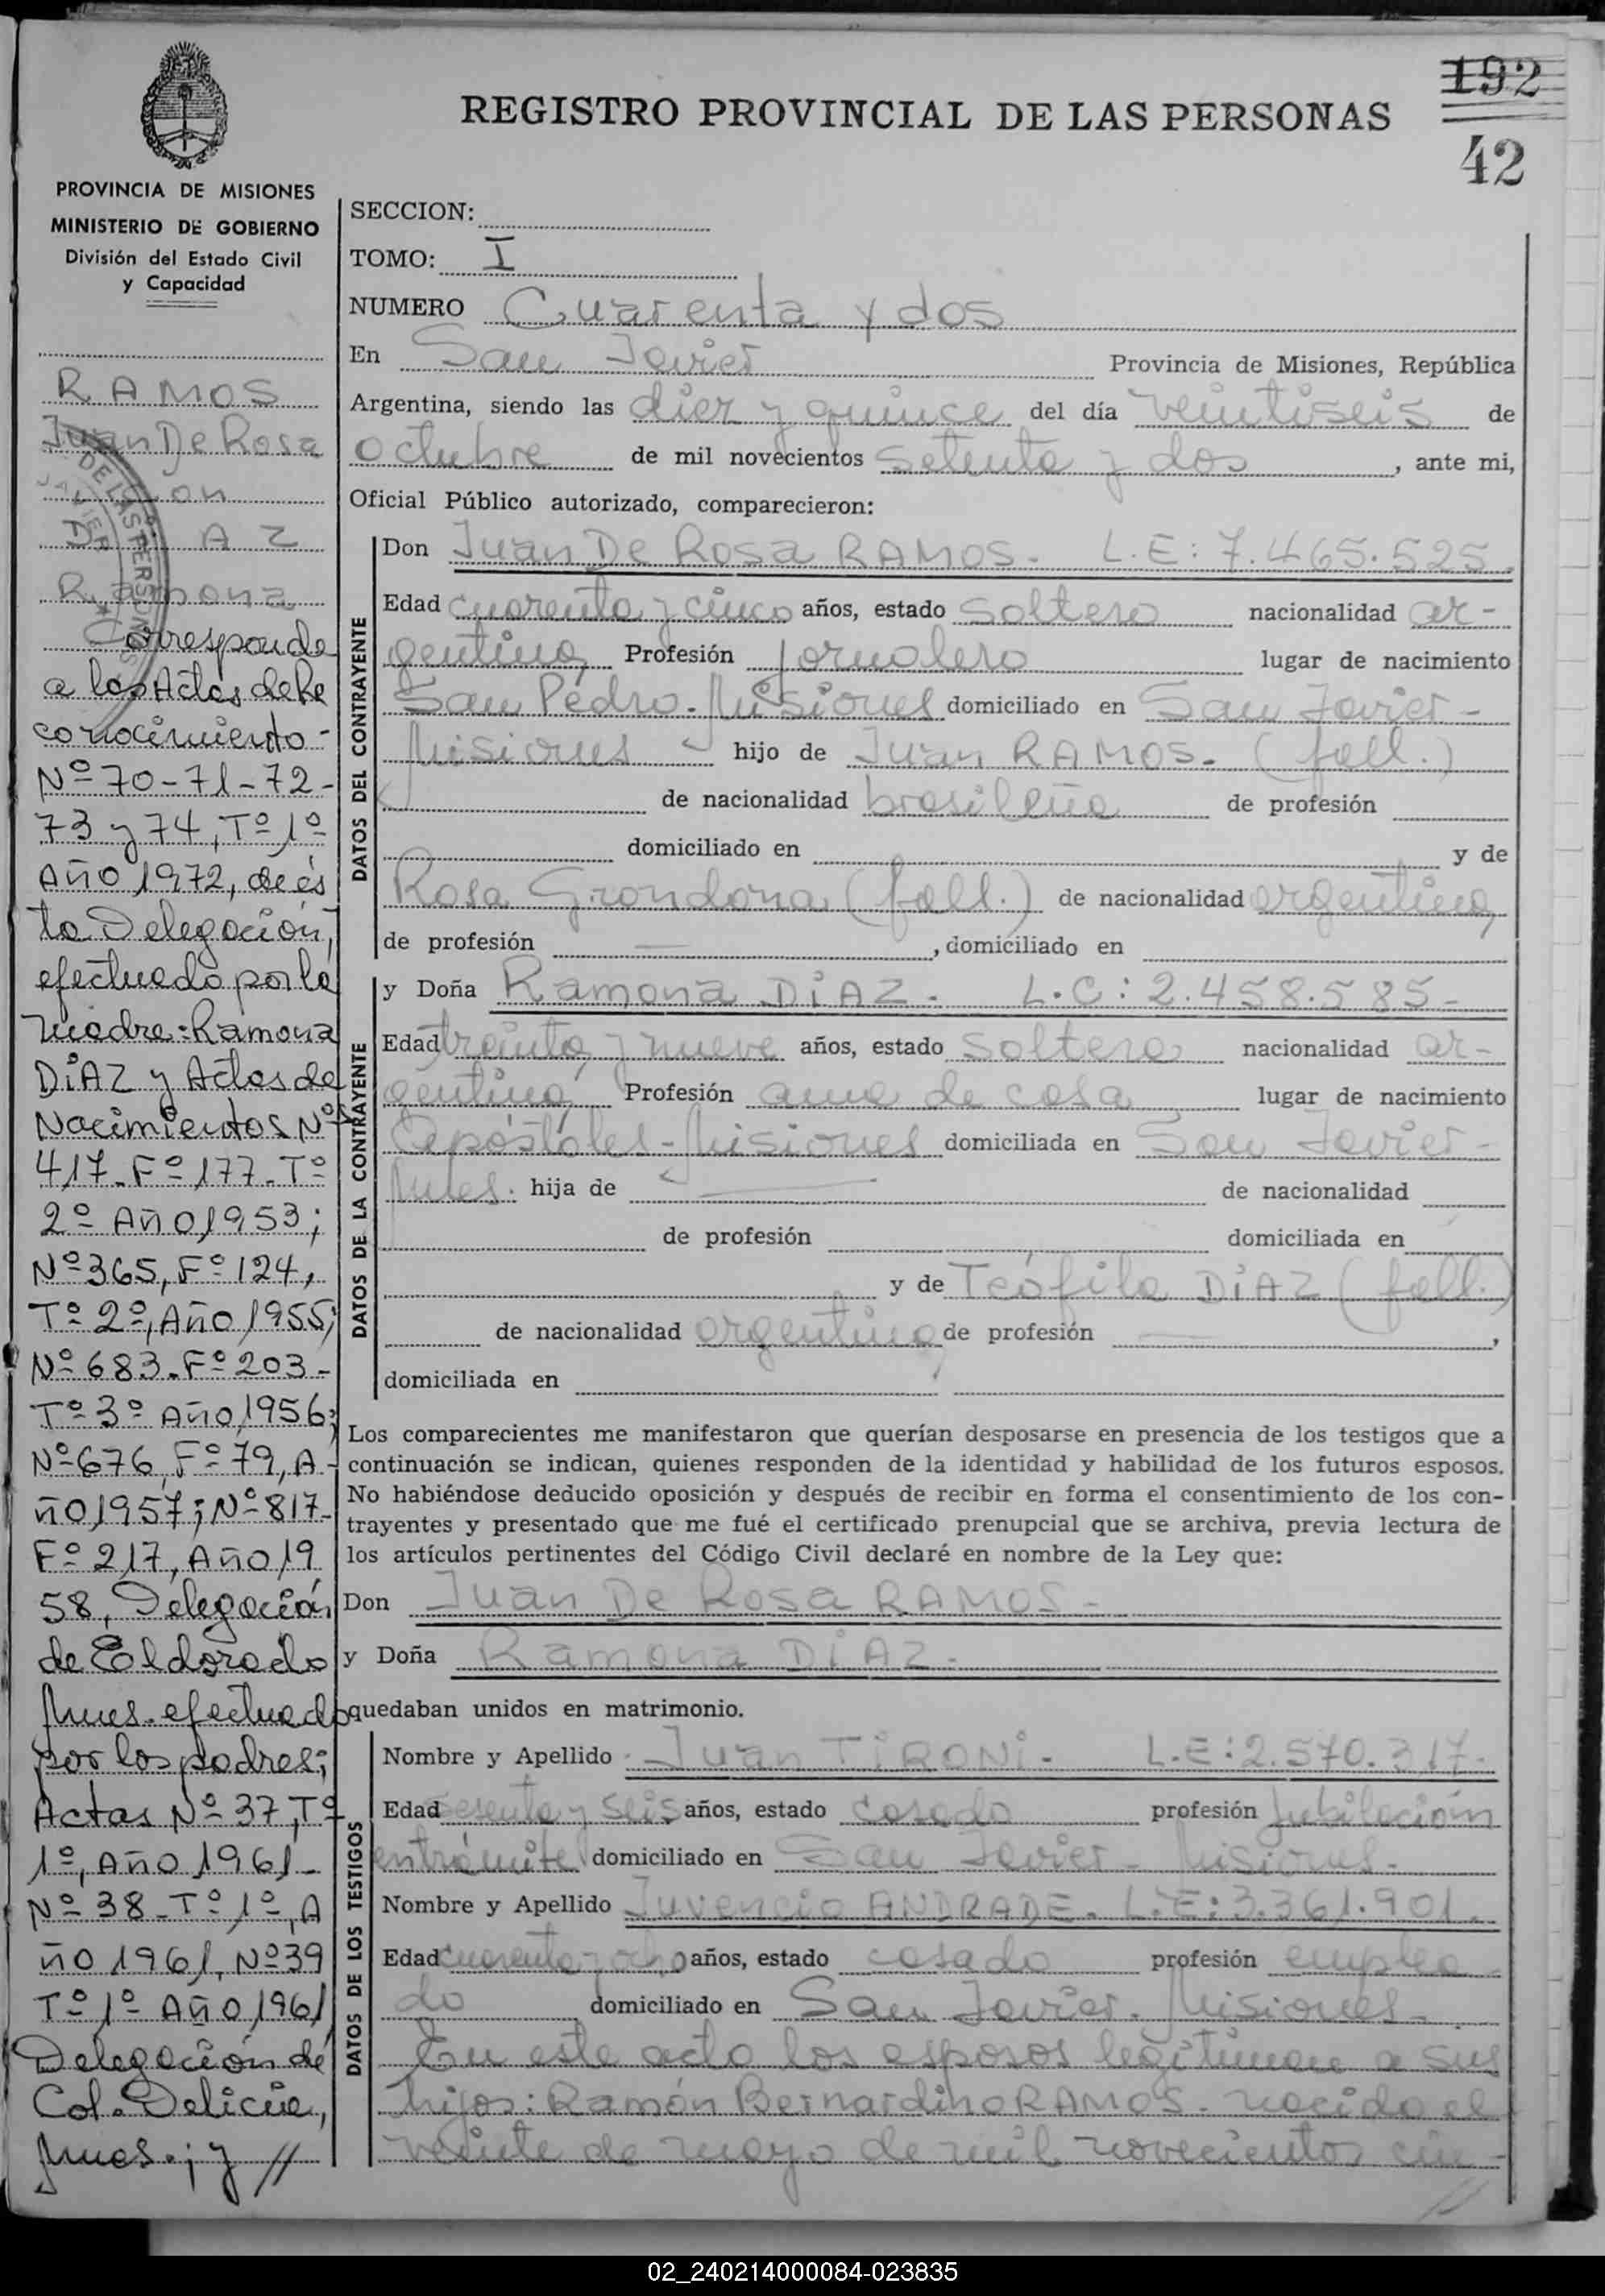 192
REGISTRO PROVINCIAL DE LAS PERSONAS
42
PROVINCIA DE MISIONES
MINISTERIO DE GOBIERNO
División del Estado Civil
y Capacidad
RAMOS
Juan De Rosa
con
DIAZ
Ramona
Corresponde
a las Actas de Re
conocimiento-
Nº 70-71-72-
73 y 74, Tº 1º
Año 1972, de és
ta Delegación,
efectuado por la
madre: Ramona
DiAZ y Actas de
Nacimientos Nºs
417-Fº 177-Tº
2º Año 1953;
Nº 365, Fº 124,
Tº 2º, Año 1955;
Nº 683-Fº 203-
Tº 3º Año 1956;
Nº 676, Fº 79, A-
ño 1957; Nº 817-
Fº 217, Año 19
58, Delegación
de Eldorado
Mnes. efectuado
por los padres;
Actas Nº 37, Tº
1º, Año 1961-
Nº 38-Tº 1º, A
ño 1961, Nº 39
Tº 1º Año 1961
Delegación de
Col. Delicia,
Mnes.; y //
SECCION:
TOMO: I
NUMERO Cuarenta y dos
En San Javier Provincia de Misiones, República
Argentina, siendo las diez y quince del día veintiseis de
octubre de mil novecientos setenta y dos, ante mi,
Oficial Público autorizado, comparecieron:
DATOS DEL CONTRAYENTE
Don Juan De Rosa RAMOS- L.E: 7.465.525.
Edad cuarenta y cinco años, estado soltero nacionalidad ar-
gentina, Profesión jornalero lugar de nacimiento
San Pedro-Misiones domiciliado en San Javier-
Misiones hijo de Juan RAMOS- (fall.)
de nacionalidad brasileña de profesión
domiciliado en y de
Rosa Grondona (fall.) de nacionalidad argentina,
de profesión —, domiciliado en
DATOS DE LA CONTRAYENTE
y Doña Ramona DiAZ- L.C: 2.458.585-
Edad treinta y nueve años, estado soltera nacionalidad ar-
gentina, Profesión ama de casa lugar de nacimiento
Apóstoles-Misiones domiciliada en San Javier-
Mnes. hija de — de nacionalidad
de profesión domiciliada en
y de Teófila DiAZ (fall.)
de nacionalidad argentina, de profesión —,
domiciliada en
Los comparecientes me manifestaron que querían desposarse en presencia de los testigos que a
continuación se indican, quienes responden de la identidad y habilidad de los futuros esposos.
No habiéndose deducido oposición y después de recibir en forma el consentimiento de los con-
trayentes y presentado que me fué el certificado prenupcial que se archiva, previa lectura de
los artículos pertinentes del Código Civil declaré en nombre de la Ley que:
Don Juan De Rosa RAMOS-
y Doña Ramona DiAZ-
quedaban unidos en matrimonio.
DATOS DE LOS TESTIGOS
Nombre y Apellido Juan TiRONi- L.E: 2.570.317-
Edad sesenta y seis años, estado casado profesión jubilación
en trámite domiciliado en San Javier-Misiones-
Nombre y Apellido Juvencio ANDRADE. L.E: 3.361.901.
Edad cuarenta y ocho años, estado casado profesión emplea
do domiciliado en San Javier-Misiones-
En este acto los esposos legitiman a sus
hijos: Ramón Bernardino RAMOS-nacido el
veinte de mayo de mil novecientos cin-
//
02_240214000084-023835